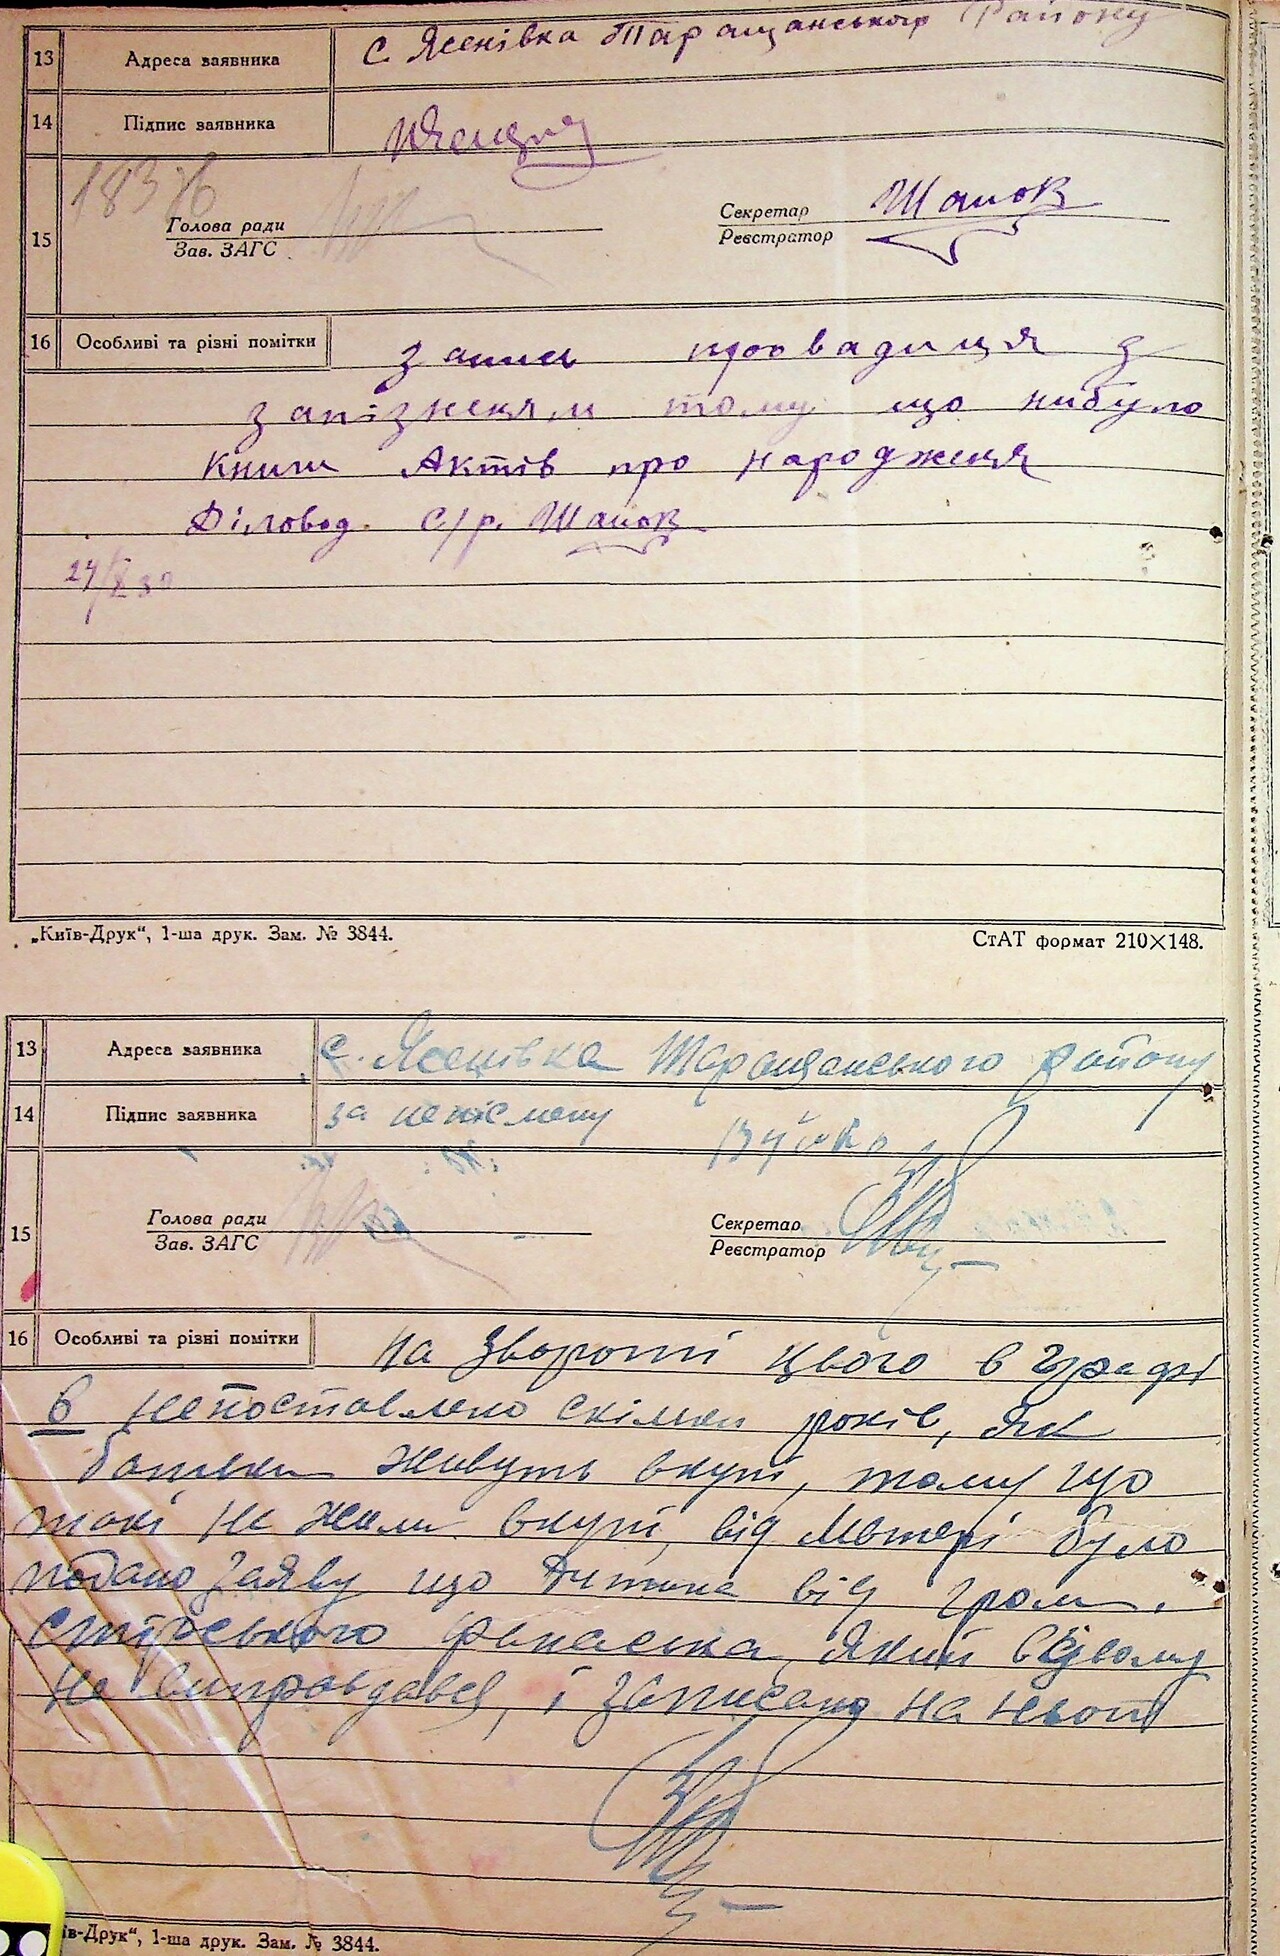 13 Адреса заявника с. Ясенівка Таращанського Району
14 Підпис заявника
15 1876
Голова ради Секретар Шапов
Зав. ЗАГС Реєстратор
16 Особливі та різні помітки запись проовадиця з
запізненям тому що нибуло
книги Актів про народженя
Діловод. с/р. Шапов
24/X 30
„Київ-Друк“, 1-ша друк. Зам. № 3844. СтАТ формат 210×148.
13 Адреса заявника с. Ясенівка Таращанського району
14 Підпис заявника за неписмену
15 Голова ради Секретар
Зав. ЗАГС Реєстратор
16 Особливі та різні помітки На звороті цього в графі
6 непоставлено скільки років, як
батьки живуть вкупі, тому що
такі не жили вкупі, від Матері було
подано заяву що Дитина від гром.
Опанаська, який в цьому
не виправдався, і записано на нього
їв-Друк“, 1-ша друк. Зам. № 3844.